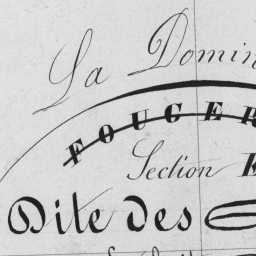 La Domin
FOUGER
Section E
Dite des